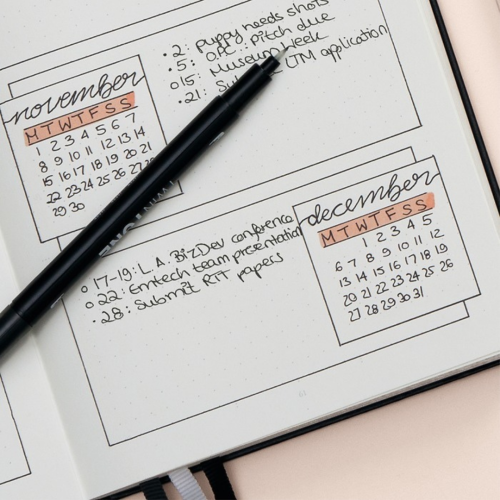 november
M T W T F S S
1 2 3 4 5 6 7
8 9 10 11 12 13 14
15 16 17 18 19 20 21
22 23 24 25 26 27 28
29 30
• 2: puppy needs shots
• 5: pitch due
o 15: Museum Week
• 21: UTM application
o 17-19: L.A. BizDev conference
o 22: Emtech team presentation
• 28: Submit papers
december
M T W T F S S
1 2 3 4 5
6 7 8 9 10 11 12
13 14 15 16 17 18 19
20 21 22 23 24 25 26
27 28 29 30 31